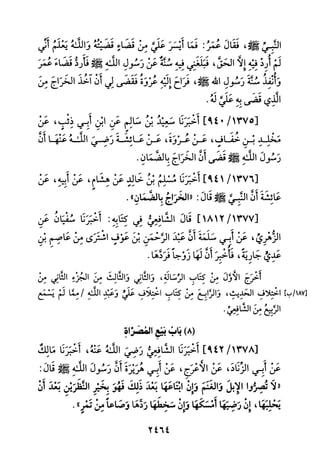 النَّبِيِّ ﷺ، فَقَالَ عُمَرُ: فَمَا أَيْسَرَ عَلَيَّ مِنْ قَضَاءٍ قَضَيْتُهُ وَاللَّهُ يَعْلَمُ أَنِّي
لَمْ أُرِدْ فِيْهِ إِلَّا الحَقَّ، فَبَلَغَتْنِي فِيهِ سُنَّةٌ عَنْ رَسُولِ اللَّهِ ﷺ فَأَرُدُّ قَضَاءَ عُمَرَ
وَأُنَفِّذُ سُنَّةَ رَسُولِ اللَّهِ ﷺ، فَرَاحَ إِلَيْهِ عُرْوَةُ فَقَضَى لِي أَنْ آخُذَ الخَرَاجَ مِنَ
الَّذِي قَضَى بِهِ عَلَيَّ لَهُ.
[٩٤٠/١٣٧٥] أَخْبَرَنَا سَعِيْدُ بْنُ سَالِمٍ عَنِ ابْنِ أَبِي ذِئْبٍ، عَنْ
مَخْلَدِ بْنِ خُفَافٍ، عَنْ عُرْوَةَ، عَنْ عَائِشَةَ رَضِيَ اللَّهُ عَنْهَا أَنَّ
رَسُولَ اللَّهِ ﷺ قَضَى أَنَّ الخَرَاجَ بِالضَّمَانِ.
[٩٤١/١٣٧٦] أَخْبَرَنَا مُسْلِمُ بْنُ خَالِدٍ عَنْ هِشَامٍ، عَنْ أَبِيهِ، عَنْ
عَائِشَةَ أَنَّ النَّبِيَّ ﷺ قَالَ: «الخَرَاجُ بِالضَّمَانِ».
[١٨١٢/١٣٧٧] قَالَ الشَّافِعِيُّ فِي كِتَابِهِ: أَخْبَرَنَا سُفْيَانُ عَنِ
الزُّهْرِيِّ، عَنْ أَبِي سَلَمَةَ أَنَّ عَبْدَ الرَّحْمَنِ بْنَ عَوْفٍ اشْتَرَى مِنْ عَاصِمِ بْنِ
عَدِيٍّ جَارِيَةً، فَأُخْبِرَ أَنَّ لَهَا زَوْجاً فَرَدَّهَا.
أَخْرَجَ الأَوَّلَ مِنْ كِتَابِ الرِّسَالَةِ، وَالثَّانِيَ وَالثَّالِثَ مِنَ الجُزْءِ الثَّانِي مِنِ
[١٨٧/ب] اخْتِلَافِ الحَدِيثِ، وَالرَّابِعَ مِنْ كِتَابِ اخْتِلَافِ عَلِيٍّ وَعَبْدِ اللَّهِ/ مِمَّا لَمْ يَسْمَعْ
الرَّبِيعُ مِنَ الشَّافِعِيِّ.
(٨) بَابُ بَيْعِ المُصَرَّاةِ
[٩٤٢/١٣٧٨] أَخْبَرَنَا الشَّافِعِيُّ رَضِيَ اللَّهُ عَنْهُ، أَخْبَرَنَا مَالِكٌ
عَنْ أَبِي الزِّنَادِ، عَنِ الأَعْرَجِ، عَنْ أَبِي هُرَيْرَةَ أَنَّ رَسُولَ اللَّهِ ﷺ قَالَ:
«لَا تُصَرُّوا الإِبِلَ وَالغَنَمَ وَإِنِ ابْتَاعَهَا بَعْدَ ذَلِكَ فَهُوَ بِخَيْرِ النَّظَرَيْنِ بَعْدَ أَنْ
يَحْلِبَهَا، إِنْ رَضِيَهَا أَمْسَكَهَا وَإِنْ سَخِطَهَا رَدَّهَا وَصَاعاً مِنْ تَمْرٍ».
٢٤٦٤